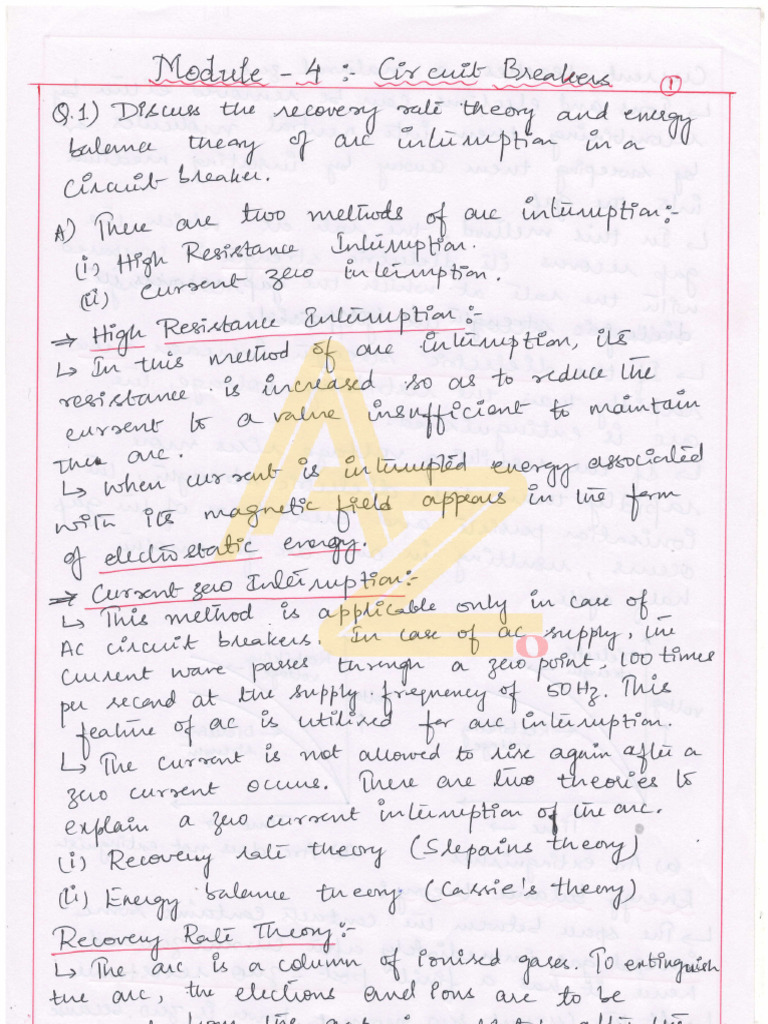 Module - 4 :- Circuit Breakers
1
Q.1) Discuss the recovery rate theory and energy
balance theory of arc interruption in a
circuit breaker.
A) There are two methods of arc interruption:-
(i) High Resistance Interruption.
(ii) Current zero interruption.
⇒ High Resistance Interruption:-
↳ In this method of arc interruption, its
resistance is increased so as to reduce the
current to a value insufficient to maintain
the arc.
↳ When current is interrupted energy associated
with its magnetic field appears in the form
of electrostatic energy.
⇒ Current zero Interruption:-
↳ This method is applicable only in case of
AC circuit breakers. In case of ac supply, the
current wave passes through a zero point 100 times
per second at the supply frequency of 50Hz. This
feature of ac is utilised for arc interruption.
↳ The current is not allowed to rise again after a
zero current occurs. There are two theories to
explain a zero current interruption of the arc.
(i) Recovery rate theory (Slepains theory)
(ii) Energy balance theory (Cassie's theory)
Recovery Rate Theory:-
↳ The arc is a column of ionised gases. To extinguish
the arc, the elections and Ions are to be
AZ